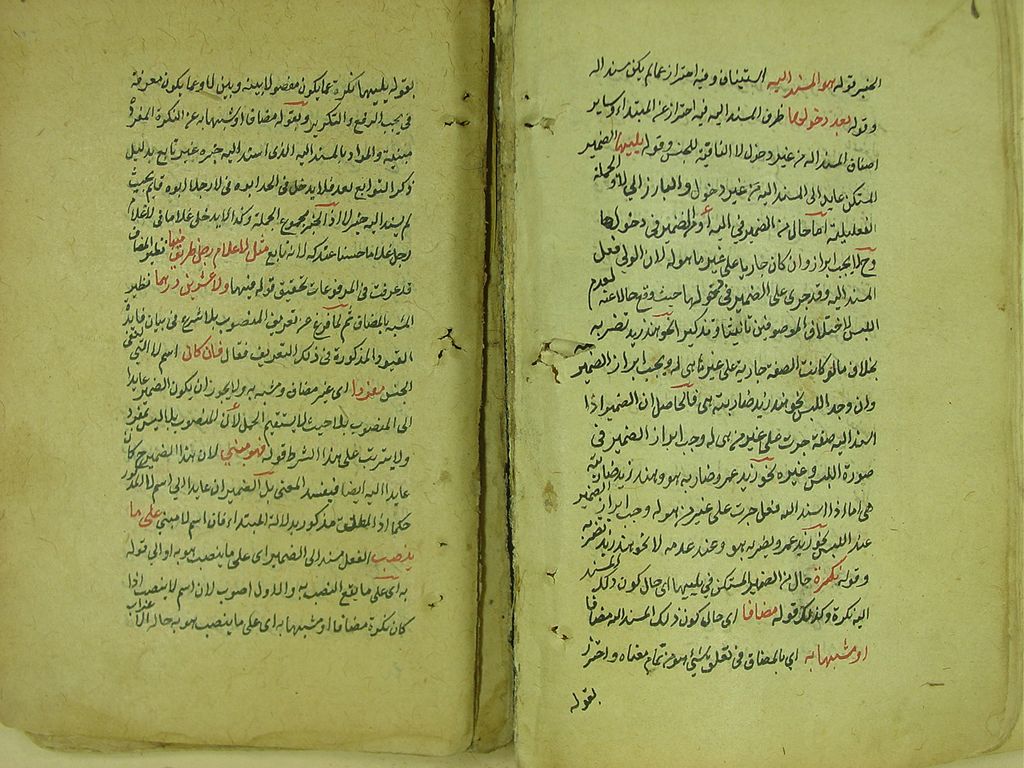 الخبر بقوله هو المسند اليه استيناف وفيه احتراز عما لم يكن مسند اليه
وقوله بعد دخولها ظرف المسند اليه فيه احتراز عن المبتداء وساير
اصناف المسند اليه من غير دخول لا النافية للجنس وقوله يليها الضمير
المستكن عايد الى المسند اليه من غير دخول والبارز الى لا والجملة
الفعلية اما حال من الضمير في اليه أو من الضمير في دخولها
وح لا يجب ابرازه وان كان جاريا على غير ما هو له لان الولي فعل
المسند اليه وقد جرى على الضمير في دخولها حيث وقع حالا عنه لعدم
اللبس لاختلاف الموصوفين تانيثا وتذكيرا نحو هند زيد تضربه
بخلاف ما لو كانت الصفة جارية على غير ما هي له ويجب ابراز الضمير
وان وجد اللبس نحو هند زيد ضاربته هي فالحاصل ان الضمير اذا
اسند اليه صفة جرت على غير من هي له وجب ابراز الضمير في
صورة اللبس وغيره نحو زيد عمرو ضاربه هو وهند زيد ضاربته
هي اما اذا اسند اليه فعل جرت على غير من هو له وجب ابراز الضمير
عند اللبس نحو زيد عمرو يضربه هو وعند عدمه لا نحو هند زيد تضربه
وقوله نكرة حال من الضمير المستكن في يليها اى حال كون ذلك المسند
اليه نكرة وكذلك قوله مضافا اى حال كون ذلك المسند اليه مضافا
او مشبها به اي بالمضاف في تعلقه بشئ هو من تمام معناه واحترز
بقوله
بقوله يليها نكرة عما يكون مفصولا بينه وبين لا وعما يكون معرفة
في يجب الرفع والتكرير وبقوله مضافا او مشبها به عن النكرة المفردة
مبنية والمراد بالمسند اليه الذى اسند اليه خبره غير تابع بدليل
ذكر التوابع بعد فلا يدخل في الحد ابوه في لا رجل ابوه قايم بحيث
لم يسند اليه خبر لا اذ الخبر مجموع الجملة وكذا لا يدخل غلاما في لا غلام
رجل غلاما حسنا عندك لانه تابع مثل لا غلام رجل ظريف فيها نظير المضاف
قد عرفت في المرفوعات تحقيق قوله فيها ولا عشرين درهما نظير
المشبه بالمضاف ثم لما فرغ عن تعريف المنصوب بلا شرع في بيان فايدة
القيود المذكورة في ذلك التعريف فقال فان كان اسم لا التي لنفي
الجنس مفردا اى غير مضاف ومشبه به ولا يجوز ان يكون الضمير عايدا
الى المنصوب بلا حيث لا يستقيم الحمل لان المنصوب بلا ليس بمفرد
ولا يترتب على هذا الشرط قوله فهو مبني لان هذا الضمير ح كان
عايدا اليه ايضا فيفسد المعنى بل الضميران عايدا الى اسم لا المذكور
حكما اذ المطلق مذكور بدلالة المبتداء فان اسم لا مبني على ما
ينصب الفعل مسند الى الضمير اى على ما ينصب هو به او الى قوله
به اى على ما يقع النصب به والاول اصوب لان اسم لا ينصب اذا
كان نكرة مضافا او مشبها به اى على ما ينصب هو به حالة الاعراب